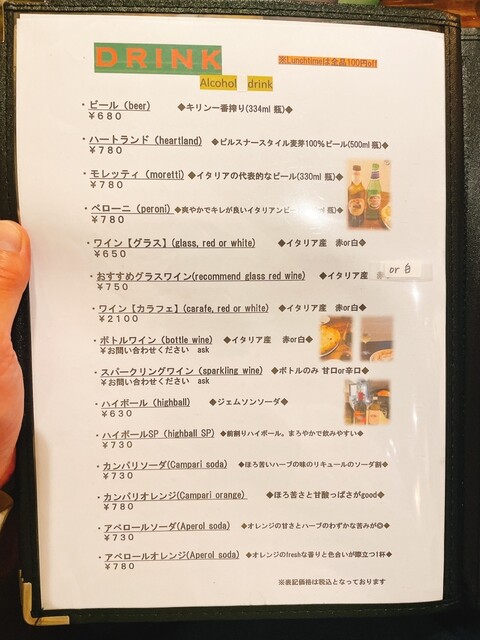 DRINK
※Lunchtimeは全品100円off
Alcohol drink
・ビール (beer) ◆キリン一番搾り(334ml 瓶)◆
￥６８０
・ハートランド (heartland) ◆ピルスナースタイル麦芽100％ビール(500ml 瓶)◆
￥７８０
・モレッティ (moretti) ◆イタリアの代表的なビール(330ml 瓶)◆
￥７８０
・ペローニ (peroni) ◆爽やかでキレが良いイタリアンビー ml 瓶)◆
￥７８０
・ワイン【グラス】(glass, red or white) ◆イタリア産 赤or白◆
￥６５０
・おすすめグラスワイン(recommend glass red wine) ◆イタリア産 or 白
￥７５０
・ワイン【カラフェ】(carafe, red or white) ◆イタリア産 赤or白◆
￥２１００
・ボトルワイン (bottle wine) ◆イタリア産 赤or白◆
￥お問い合わせください ask
・スパークリングワイン (sparkling wine) ◆ボトルのみ 甘口or辛口◆
￥お問い合わせください ask
・ハイボール (highball) ◆ジェムソンソーダ◆
￥６３０
・ハイボールSP (highball SP) ◆前割りハイボール。まろやかで飲みやすい◆
￥７３０
・カンパリソーダ(Campari soda) ◆ほろ苦いハーブの味のリキュールのソーダ割◆
￥７３０
・カンパリオレンジ(Campari orange) ◆ほろ苦さと甘酸っぱさがgood◆
￥７８０
・アペロールソーダ(Aperol soda) ◆オレンジの甘さとハーブのわずかな苦みが◎◆
￥７３０
・アペロールオレンジ(Aperol soda) ◆オレンジのfreshな香りと色合いが際立つ1杯◆
￥７８０
※表記価格は税込となっております